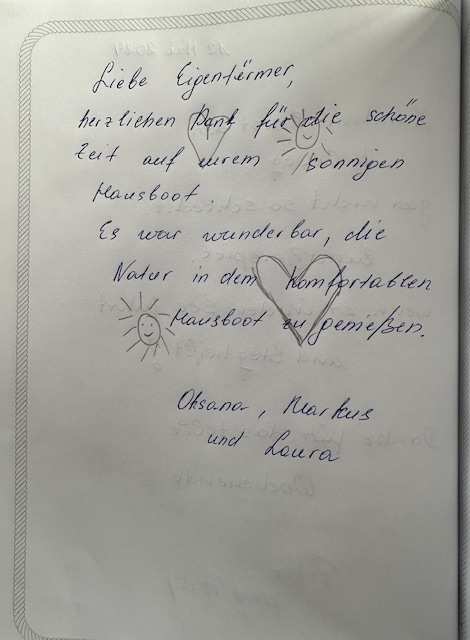 Liebe Eigentürmer,
herzlichen Dank für die schöne
Zeit auf eurem sonnigen
Hausboot.
Es war wunderbar, die
Natur in dem komfortablen
Hausboot zu genießen.
Oksana, Markus
und Laura